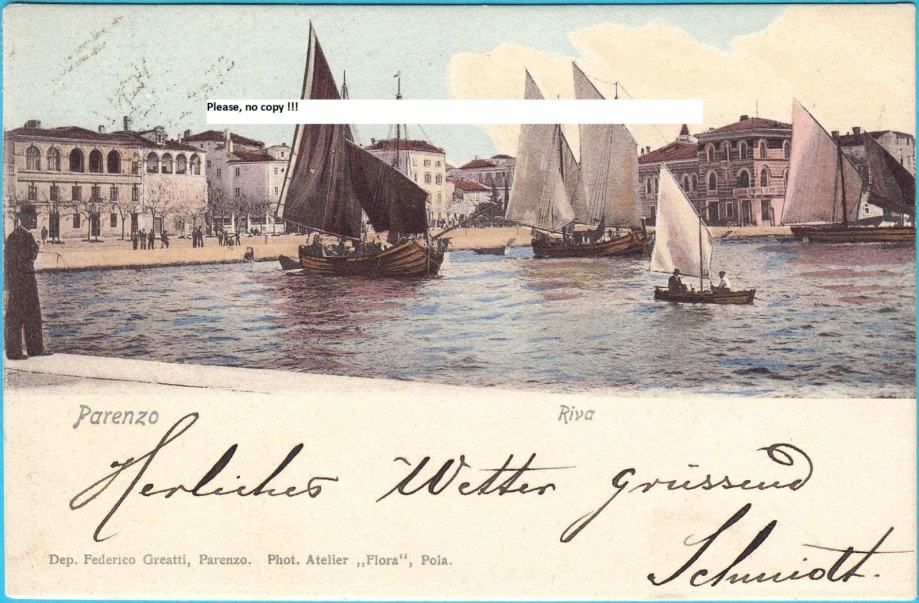 Please, no copy !!!
Parenzo Riva
Herliches Wetter grüssend
Schmidt.
Dep. Federico Greatti, Parenzo. Phot. Atelier „Flora“, Pola.